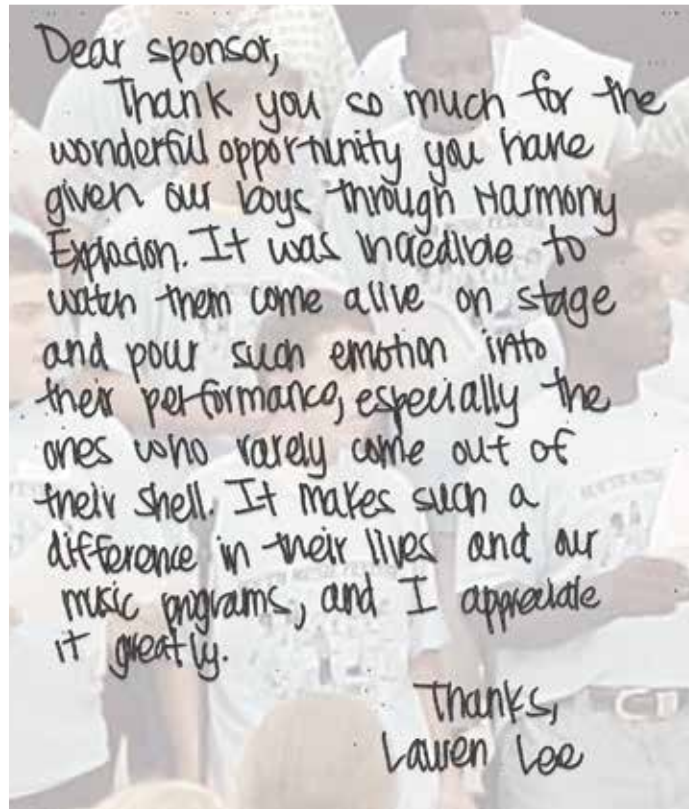 Dear sponsor,
Thank you so much for the
wonderful opportunity you have
given our boys through Harmony
Explosion. It was incredible to
watch them come alive on stage
and pour such emotion into
their performance, especially the
ones who rarely come out of
their shell. It makes such a
difference in their lives and our
music programs, and I appreciate
it greatly.
Thanks,
Lauren Lee